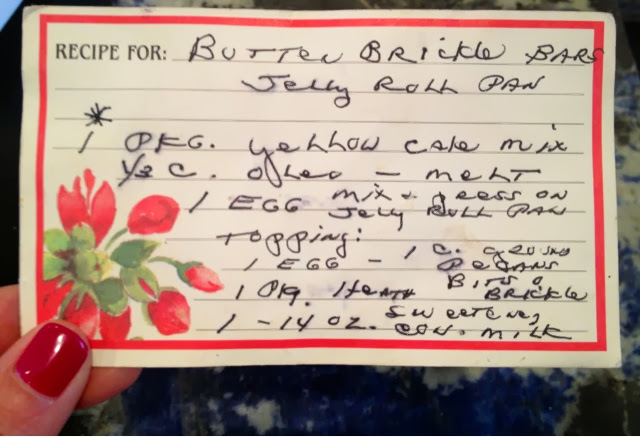 RECIPE FOR: BUTTER BRICKLE BARS
JELLY ROLL PAN
*
1 PKG. YELLOW CAKE MIX
1/2 C. OLEO - MELT
1 EGG MIX + PRESS ON
JELLY ROLL PAN
TOPPING:
1 EGG - 1 C. GROUND
PECANS
1 PKG. HEATH BITS O
BRICKLE
1 - 14 OZ. SWEETENED
CON. MILK